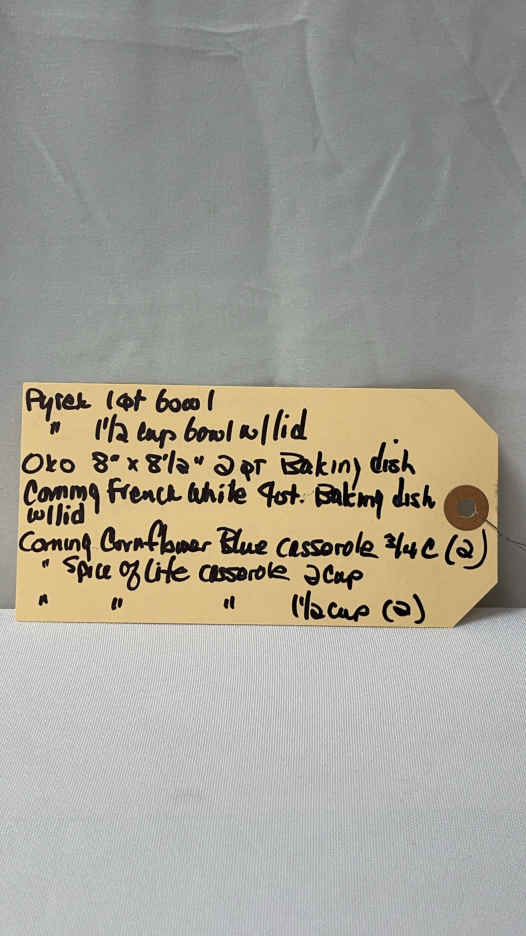 Pyrex 1 qt bowl
" 1 1/2 cup bowl w/lid
Oxo 8" x 8 1/2" 2 qt Baking dish
Corning French White 4 qt. Baking dish
w/lid
Corning Cornflower Blue casserole 3/4 C (2)
" Spice of Life casserole 2 cup
" " " 1 1/2 cup (2)